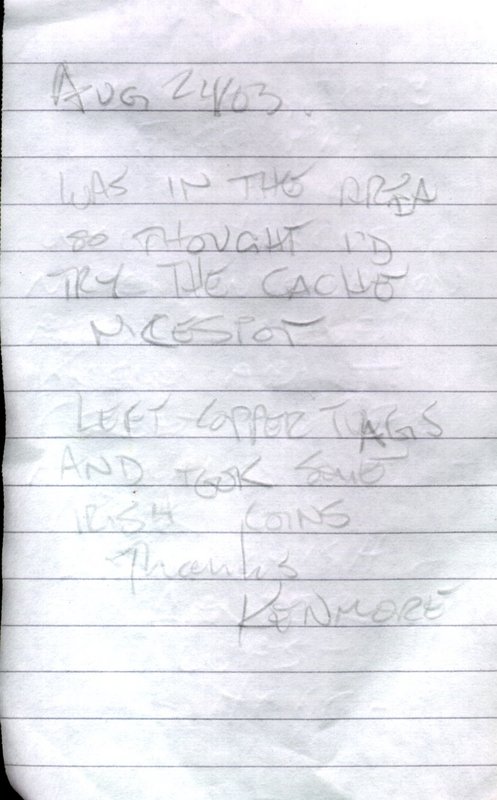 AUG 24/03.
WAS IN THE AREA
SO THOUGHT I'D
TRY THE CACHE
NICE SPOT
LEFT COPPER TAGS
AND TOOK SOME
IRISH COINS
Thanks
KENMORE